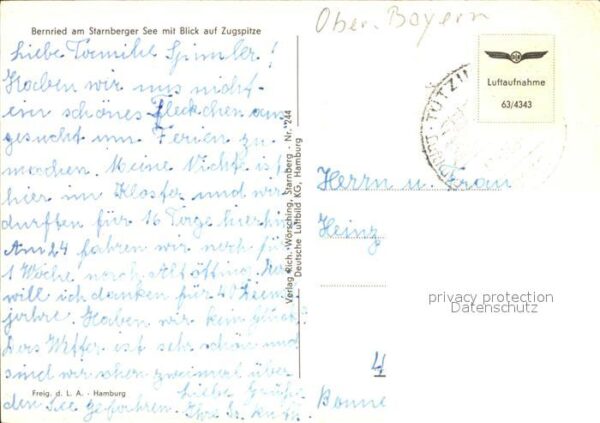 Bernried am Starnberger See mit Blick auf Zugspitze
Ober-Bayern
Liebe Familie Spindler!
Haben wir uns nicht
ein schönes Fleckchen aus
gesucht um Ferien zu
machen. Meine Nichte ist
hier im Kloster und wir
durften für 16 Tage hierhin
Am 24 fahren wir noch für
1 Woche nach Altötting. Da
will ich danken für 40
jahre. Haben wir kein Glück?
Das Wetter ist sehr schön und
sind wir schon zweimal über
den See gefahren. Liebe Grüße
Ihre
Freig. d. L. A. - Hamburg
Verlag Rich. Wörsching, Starnberg - Nr. 244
Deutsche Luftbild KG, Hamburg
Luftaufnahme
63/4343
TUTZIN
Herrn u. Frau
Heinz
privacy protection
Datenschutz
4
Bonne